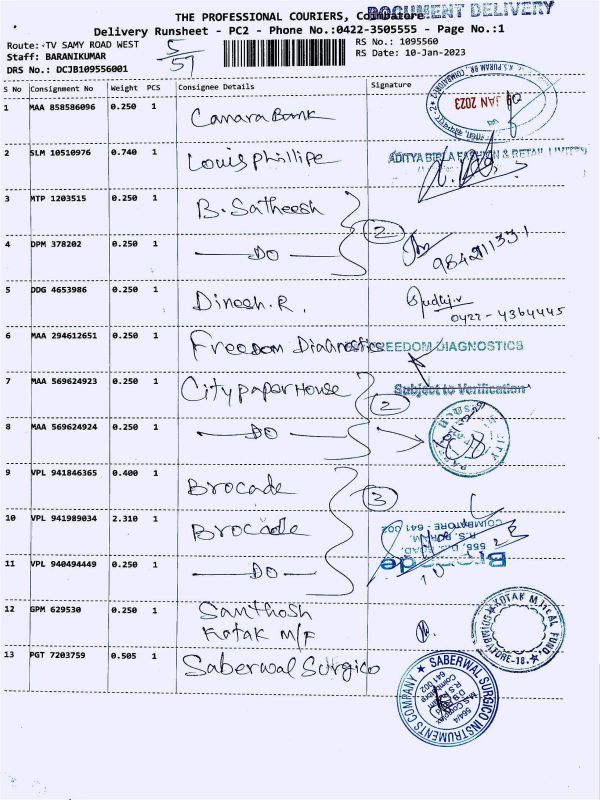 DOCUMENT DELIVERY
THE PROFESSIONAL COURIERS, Coimbatore
Delivery Runsheet - PC2 - Phone No.:0422-3505555 - Page No.:1
Route: TV SAMY ROAD WEST
Staff: BARANIKUMAR
DRS No.: DCJB109556001
5/57
RS No.: 1095560
RS Date: 10-Jan-2023
S No Consignment No Weight PCS Consignee Details Signature
1 MAA 858586096 0.250 1 Canara Bank
JAN 2023
2 SLM 10510976 0.740 1 Louis Phillipe ADITYA BIRLA FASHION & RETAIL LIMITED
3 MTP 1203515 0.250 1 B. Satheesh
2
4 DPM 378202 0.250 1 — DO — 9842111331
5 DDG 4653986 0.250 1 Dinesh. R.
0422 - 4364445
6 MAA 294612651 0.250 1 Freedom Diagnostics FREEDOM DIAGNOSTICS
7 MAA 569624923 0.250 1 City paper House Subject to Verification
2
8 MAA 569624924 0.250 1 — DO —
9 VPL 941846365 0.400 1 Brocade
3
10 VPL 941989034 2.310 1 Brocade
COIMBATORE - 641 002
R.S. PURAM,
Brocade
11 VPL 940494449 0.250 1 — DO —
12 GPM 629530 0.250 1 Santhosh
Kotak M/F
KOTAK MUTUAL FUND, COIMBATORE-18.
13 PGT 7203759 0.505 1 Saberwal Surgico
SABERWAL SURGICO INSTRUMENTS COMPANY
Coimbatore
641 002